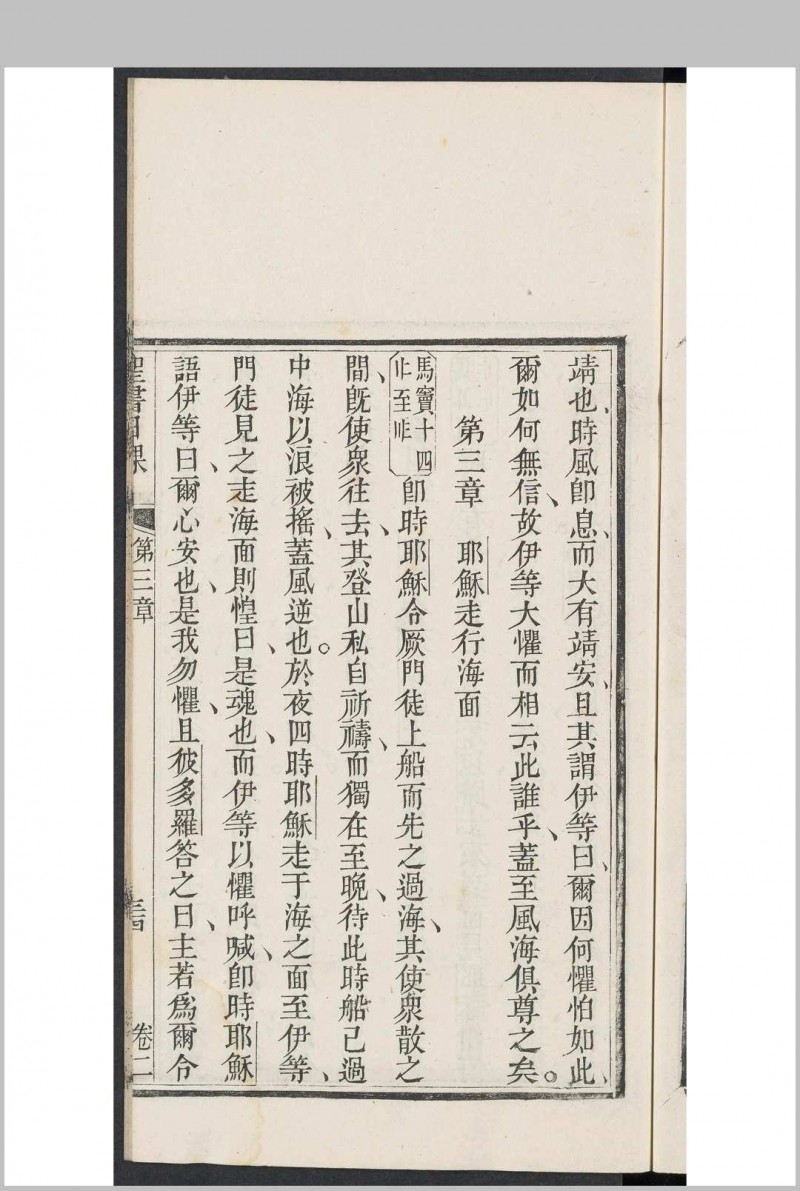 靖也、時風卽息、而大有靖安、且其謂伊等曰、爾因何懼怕如此、
爾如何無信、故伊等大懼而相云、此誰乎、蓋至風海俱尊之矣。
第三章 耶穌走行海面
馬竇十四
卽時耶穌令厥門徒上船而先之過海、其使衆散之
間、旣使衆往去、其登山私自祈禱、而獨在至晚、待此時船已過
中海以浪被搖、蓋風逆也。於夜四時、耶穌走于海之面至伊等、
門徒見之走海面、則惶曰、是魂也、而伊等以懼呼喊、卽時耶穌
語伊等曰、爾心安也、是我勿懼、且彼多羅答之曰、主若爲爾令
聖書日課
第三章
卷二